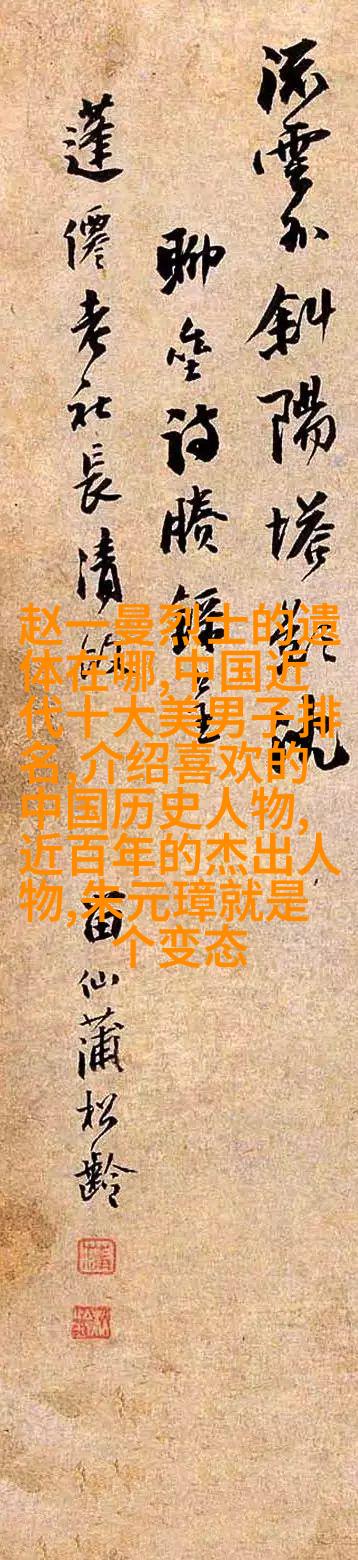 流雲外斜陽塔
聊詩
蓬僊老社長清
留仙蒲松齡
赵一曼烈士的遗
体在哪,中国近
代十大美男子排
名,介绍喜欢的
中国历史人物,
近百年的杰出人
物,朱元璋就是
个变态